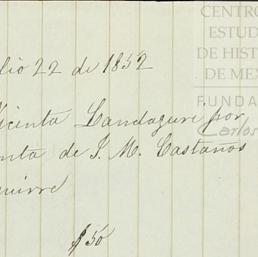 CENTRO
ESTUD
DE HIST
DE MEX
FUNDA
Carlos
lio 22 de 1852
icenta Landaguri por
nta de J. M. Castaños
uirre
$50